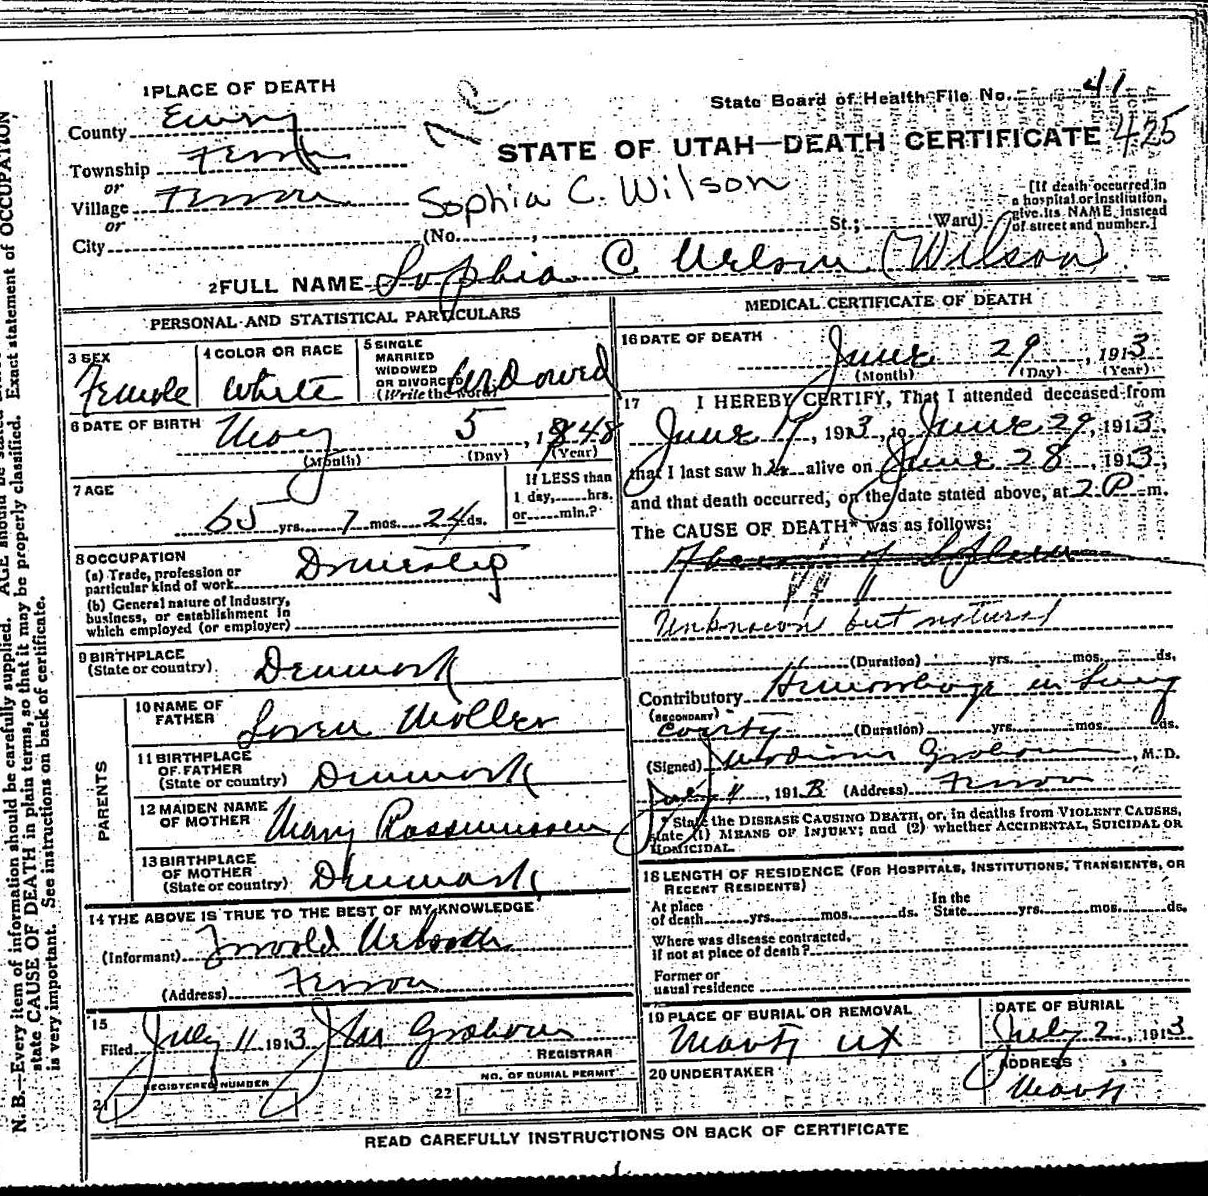 1 PLACE OF DEATH
County Emery
Township Ferron
or
Village Ferron
or
City
State Board of Health File No. 41
STATE OF UTAH—DEATH CERTIFICATE 425
Sophia C. Wilson
(No. , St.; Ward)
[If death occurred in
a hospital or institution,
give its NAME instead
of street and number.]
2 FULL NAME Sophia C (Wilson)
PERSONAL AND STATISTICAL PARTICULARS
3 SEX
Female
4 COLOR OR RACE
White
5 SINGLE
MARRIED
WIDOWED
OR DIVORCED
(Write the word)
Widowed
6 DATE OF BIRTH
May 5, 1848
(Month) (Day) (Year)
7 AGE
65 yrs. 7 mos. 24 ds.
If LESS than
1 day, hrs.
or min.?
8 OCCUPATION
(a) Trade, profession or
particular kind of work
(b) General nature of industry,
business, or establishment in
which employed (or employer)
9 BIRTHPLACE
(State or country) Denmark
PARENTS
10 NAME OF
FATHER Soren Moller
11 BIRTHPLACE
OF FATHER
(State or country) Denmark
12 MAIDEN NAME
OF MOTHER Mary Rassmussen
13 BIRTHPLACE
OF MOTHER
(State or country) Denmark
14 THE ABOVE IS TRUE TO THE BEST OF MY KNOWLEDGE
(Informant)
(Address) Ferron
15
Filed July 11 1913
REGISTRAR
REGISTERED NUMBER
21
NO. OF BURIAL PERMIT
22
MEDICAL CERTIFICATE OF DEATH
16 DATE OF DEATH
June 29, 1913
(Month) (Day) (Year)
17 I HEREBY CERTIFY, That I attended deceased from
June 19, 1913, to June 29, 1913,
that I last saw her alive on June 28, 1913,
and that death occurred, on the date stated above, at 2 P m.
The CAUSE OF DEATH* was as follows:
Unknown but natural
(Duration) yrs. mos. ds.
Contributory Hemorrhage in Lung
(SECONDARY) cavity (Duration) yrs. mos. ds.
(Signed) , M. D.
July 11, 1913 (Address) Ferron
* State the DISEASE CAUSING DEATH, or, in deaths from VIOLENT CAUSES,
state (1) MEANS OF INJURY; and (2) whether ACCIDENTAL, SUICIDAL OR
HOMICIDAL.
18 LENGTH OF RESIDENCE (FOR HOSPITALS, INSTITUTIONS, TRANSIENTS, OR
RECENT RESIDENTS)
At place
of death yrs. mos. ds.
In the
State yrs. mos. ds.
Where was disease contracted,
if not at place of death?
Former or
usual residence
19 PLACE OF BURIAL OR REMOVAL
Manti ut
DATE OF BURIAL
July 2, 1913
20 UNDERTAKER
ADDRESS
Manti
READ CAREFULLY INSTRUCTIONS ON BACK OF CERTIFICATE
N. B.—Every item of information should be carefully supplied. AGE should be stated
state CAUSE OF DEATH in plain terms, so that it may be properly classified. Exact statement of OCCUPATION
is very important. See instructions on back of certificate.